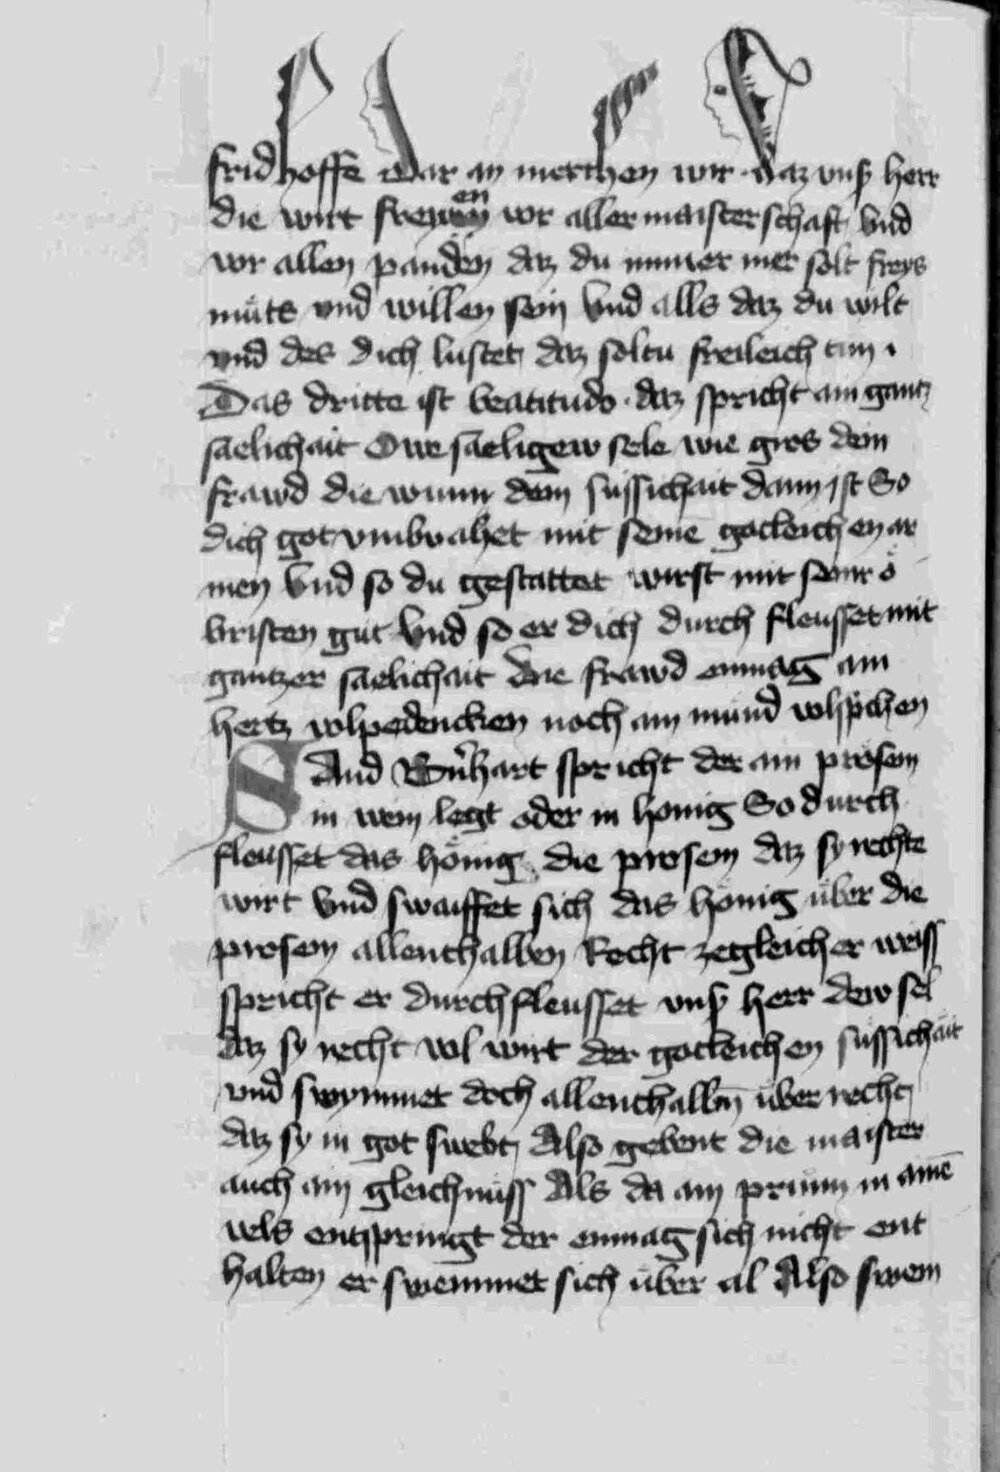 fridhoffe Dar an merchen wir · daz vnß herr
die wirt freyen vor aller maisterschaft Vnd
vor allen panden daz du nimer mer solt freys
mütz vnd willen sein Vnd alls daz du wilt
vnd des dich lustet daz soltu freileich tun ·
Das dritte ist beatitudo · daz spricht ain gantz
saelichait Owe saeligew sele wie gros dein
frawd die wunn dein süssichait dann ist So
dich got vmbvahet mit seinē gotleichen ar
men Vnd so du gesattet wirst mit seinr ö
bristen güt Vnd so er dich durch fleusset mit
gantzer saelichait Die frawd enmag ain
hertz volpedencken noch ain mund volspͤchen
Sand Bn̄hart spricht der ain prosem
in wein legt oder in honig So durch
fleusset das hönig die prosem daz sy rechte
wirt Vnd swaiffet sich das hönig über die
prosem allenthalben Recht zegleicher weiss
spricht er durchfleusset vnß herr dew sel
daz sy recht vol wirt der gotleichen süssichait
vnd swymmet doch allenthalbn̄ über recht
daz sy in got swebt Also gebent die maister
auch ain gleichnüss Als da ain prünn in ainē
vels entspringt der enmag sich nicht ent
halten er swemmet sich über al Also swem